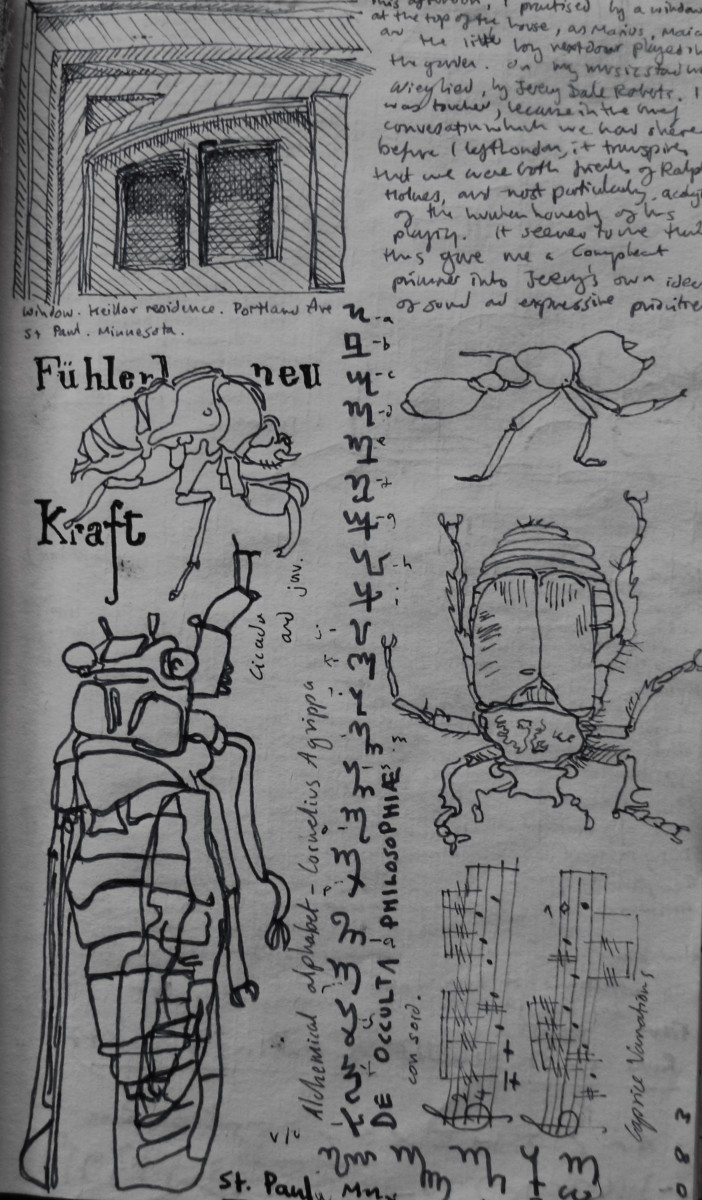 this afternoon, I practised by a window
at the top of the house, as Marius,
and the little boy next door played in
the garden. On my music stand was
by Jeremy Dale Roberts. I
was touched, because in the brief
conversation which we had shared
before I left London, it transpired
that we were both friends of Ralph
Holmes, and most particularly,
of the human honesty of his
playing. It seemed to me that
this gave me a compleat
primer into Jeremy's own ideas
of sound and expressive priorities
Window. Heillor residence. Portland Ave
St Paul. Minnesota.
Fühler
neu
Kraft
-a
-b
-c
-d
-e
-f
-g
Cicada
and juv.
Alchemical alphabet - Cornelius Agrippa
DE OCCULTA PHILOSOPHIÆ
con sord.
Caprice Variations
St. Paul, Mn.